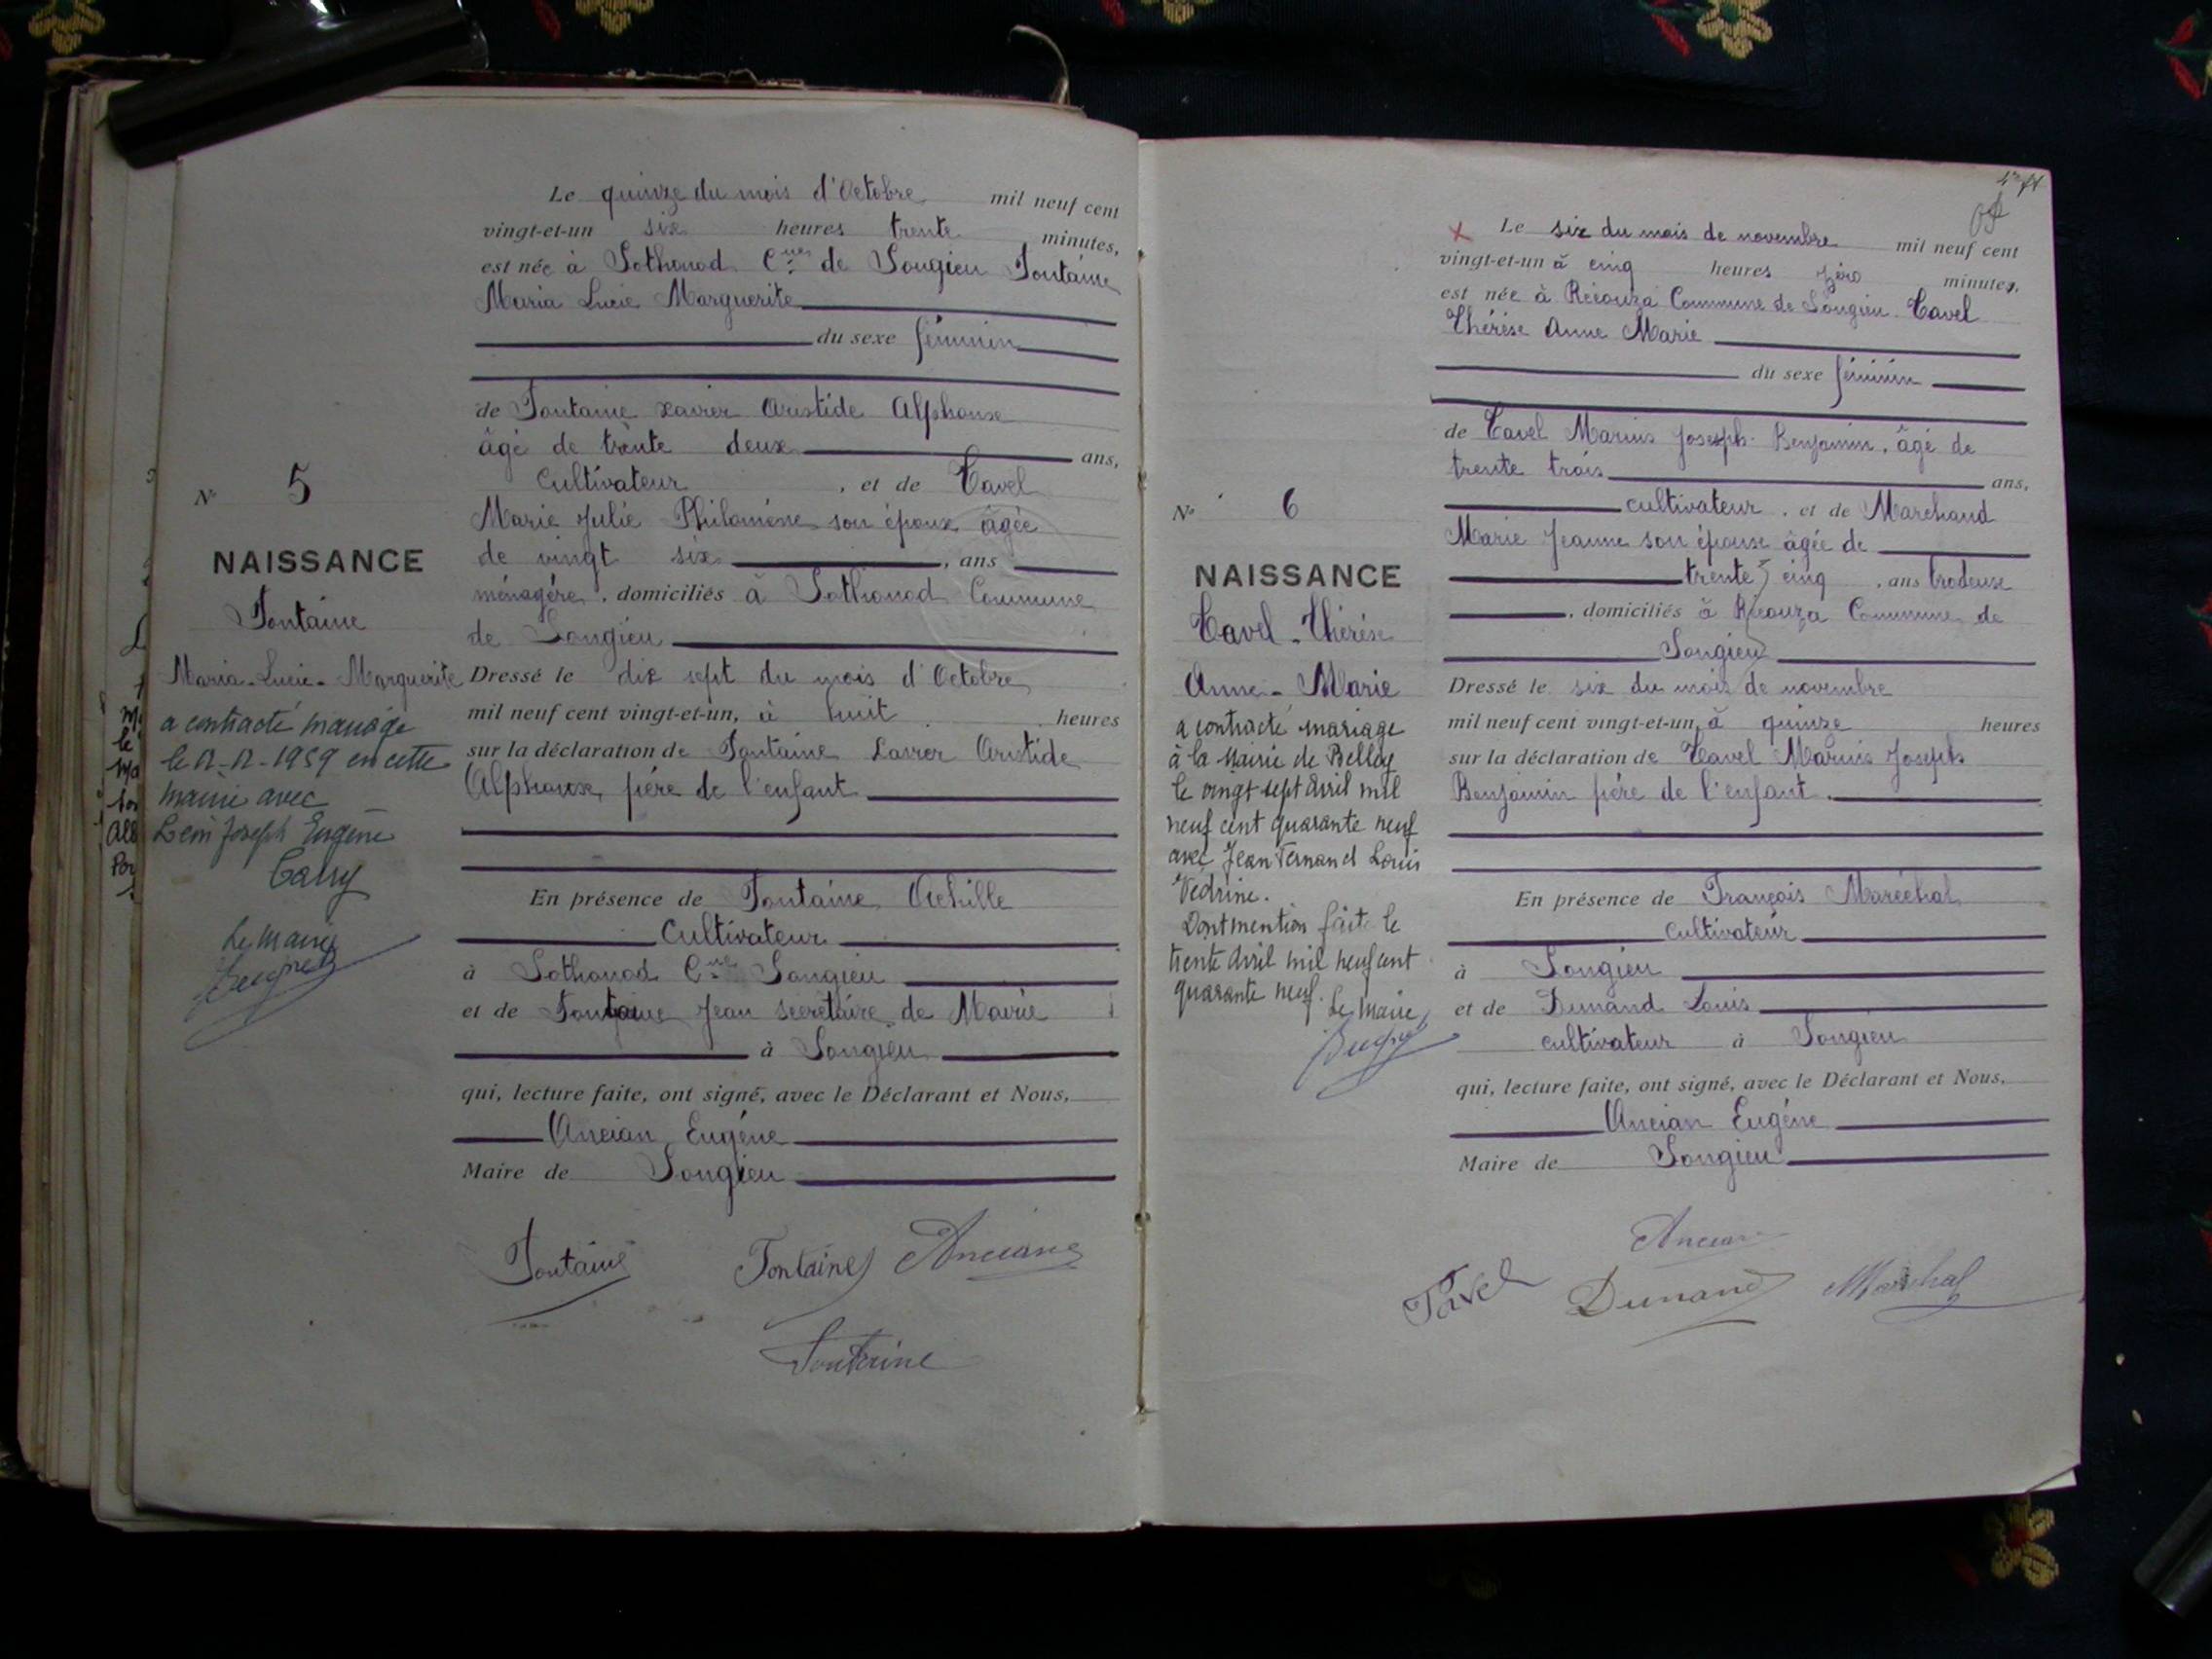 N° 5
NAISSANCE
Fontaine
Maria-Lucie-Marguerite
a contracté mariage
le 12-12-1959 en cette
mairie avec
Joseph Eugène
Le Maire
Le quinze du mois d'Octobre mil neuf cent
vingt-et-un six heures trente minutes,
est née à Sothonod Cne de Songieu Fontaine
Maria Lucie Marguerite
du sexe féminin
de Fontaine Xavier Aristide Alphonse
âgé de trente deux ans,
cultivateur, et de Tavel
Marie Julie Philomène son épouse âgée
de vingt six, ans
ménagère, domiciliés à Sothonod Commune
de Songieu
Dressé le dix sept du mois d'Octobre
mil neuf cent vingt-et-un, à huit heures
sur la déclaration de Fontaine Xavier Aristide
Alphonse, père de l'enfant
En présence de Fontaine Achille
Cultivateur
à Sothonod Cne Songieu
et de Fontaine Jean secrétaire de Mairie
à Songieu
qui, lecture faite, ont signé, avec le Déclarant et Nous,
Ancian Eugène
Maire de Songieu
Fontaine Fontaine Ancian
Fontaine
N° 6
NAISSANCE
Tavel - Thérèse
Anne - Marie
a contracté mariage
à la Mairie de Belley
le vingt sept avril mil
neuf cent quarante neuf
avec Jean Fernand Louis
Vedrine.
Dont mention faite le
trente avril mil neuf cent
quarante neuf. Le Maire,
Le six du mois de novembre mil neuf cent
vingt-et-un à cinq heures zéro minutes,
est née à Réouza Commune de Songieu Tavel
Thérèse Anne Marie
du sexe féminin
de Tavel Marius Joseph Benjamin, âgé de
trente trois ans,
cultivateur, et de Marchand
Marie Jeanne son épouse âgée de
trente cinq, ans brodeuse
, domiciliés à Réouza Commune de
Songieu
Dressé le six du mois de novembre
mil neuf cent vingt-et-un, à quinze heures
sur la déclaration de Tavel Marius Joseph
Benjamin père de l'enfant.
En présence de François Maréchal
cultivateur
à Songieu
et de Dunand Louis
cultivateur à Songieu
qui, lecture faite, ont signé, avec le Déclarant et Nous,
Ancian Eugène
Maire de Songieu
Ancian
Tavel Dunand Maréchal